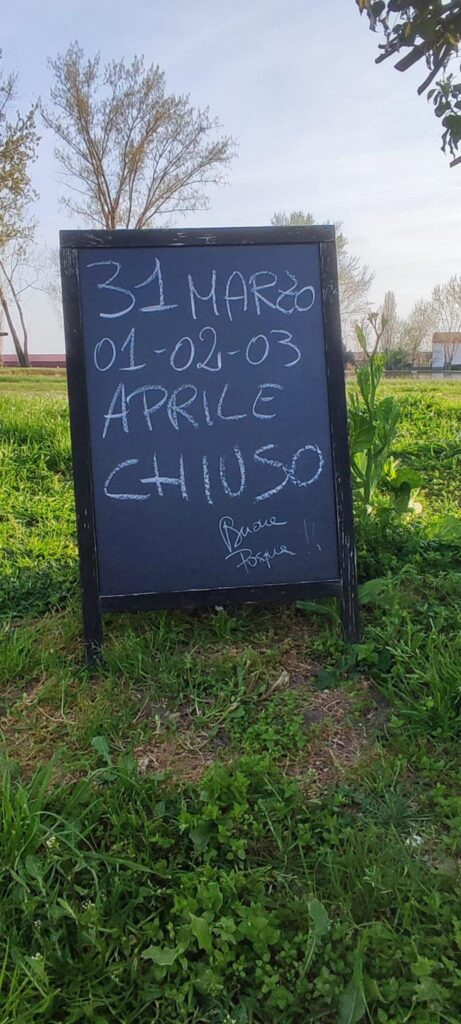 31 MARZO
01-02-03
APRILE
CHIUSO
Buone
Pasque !!